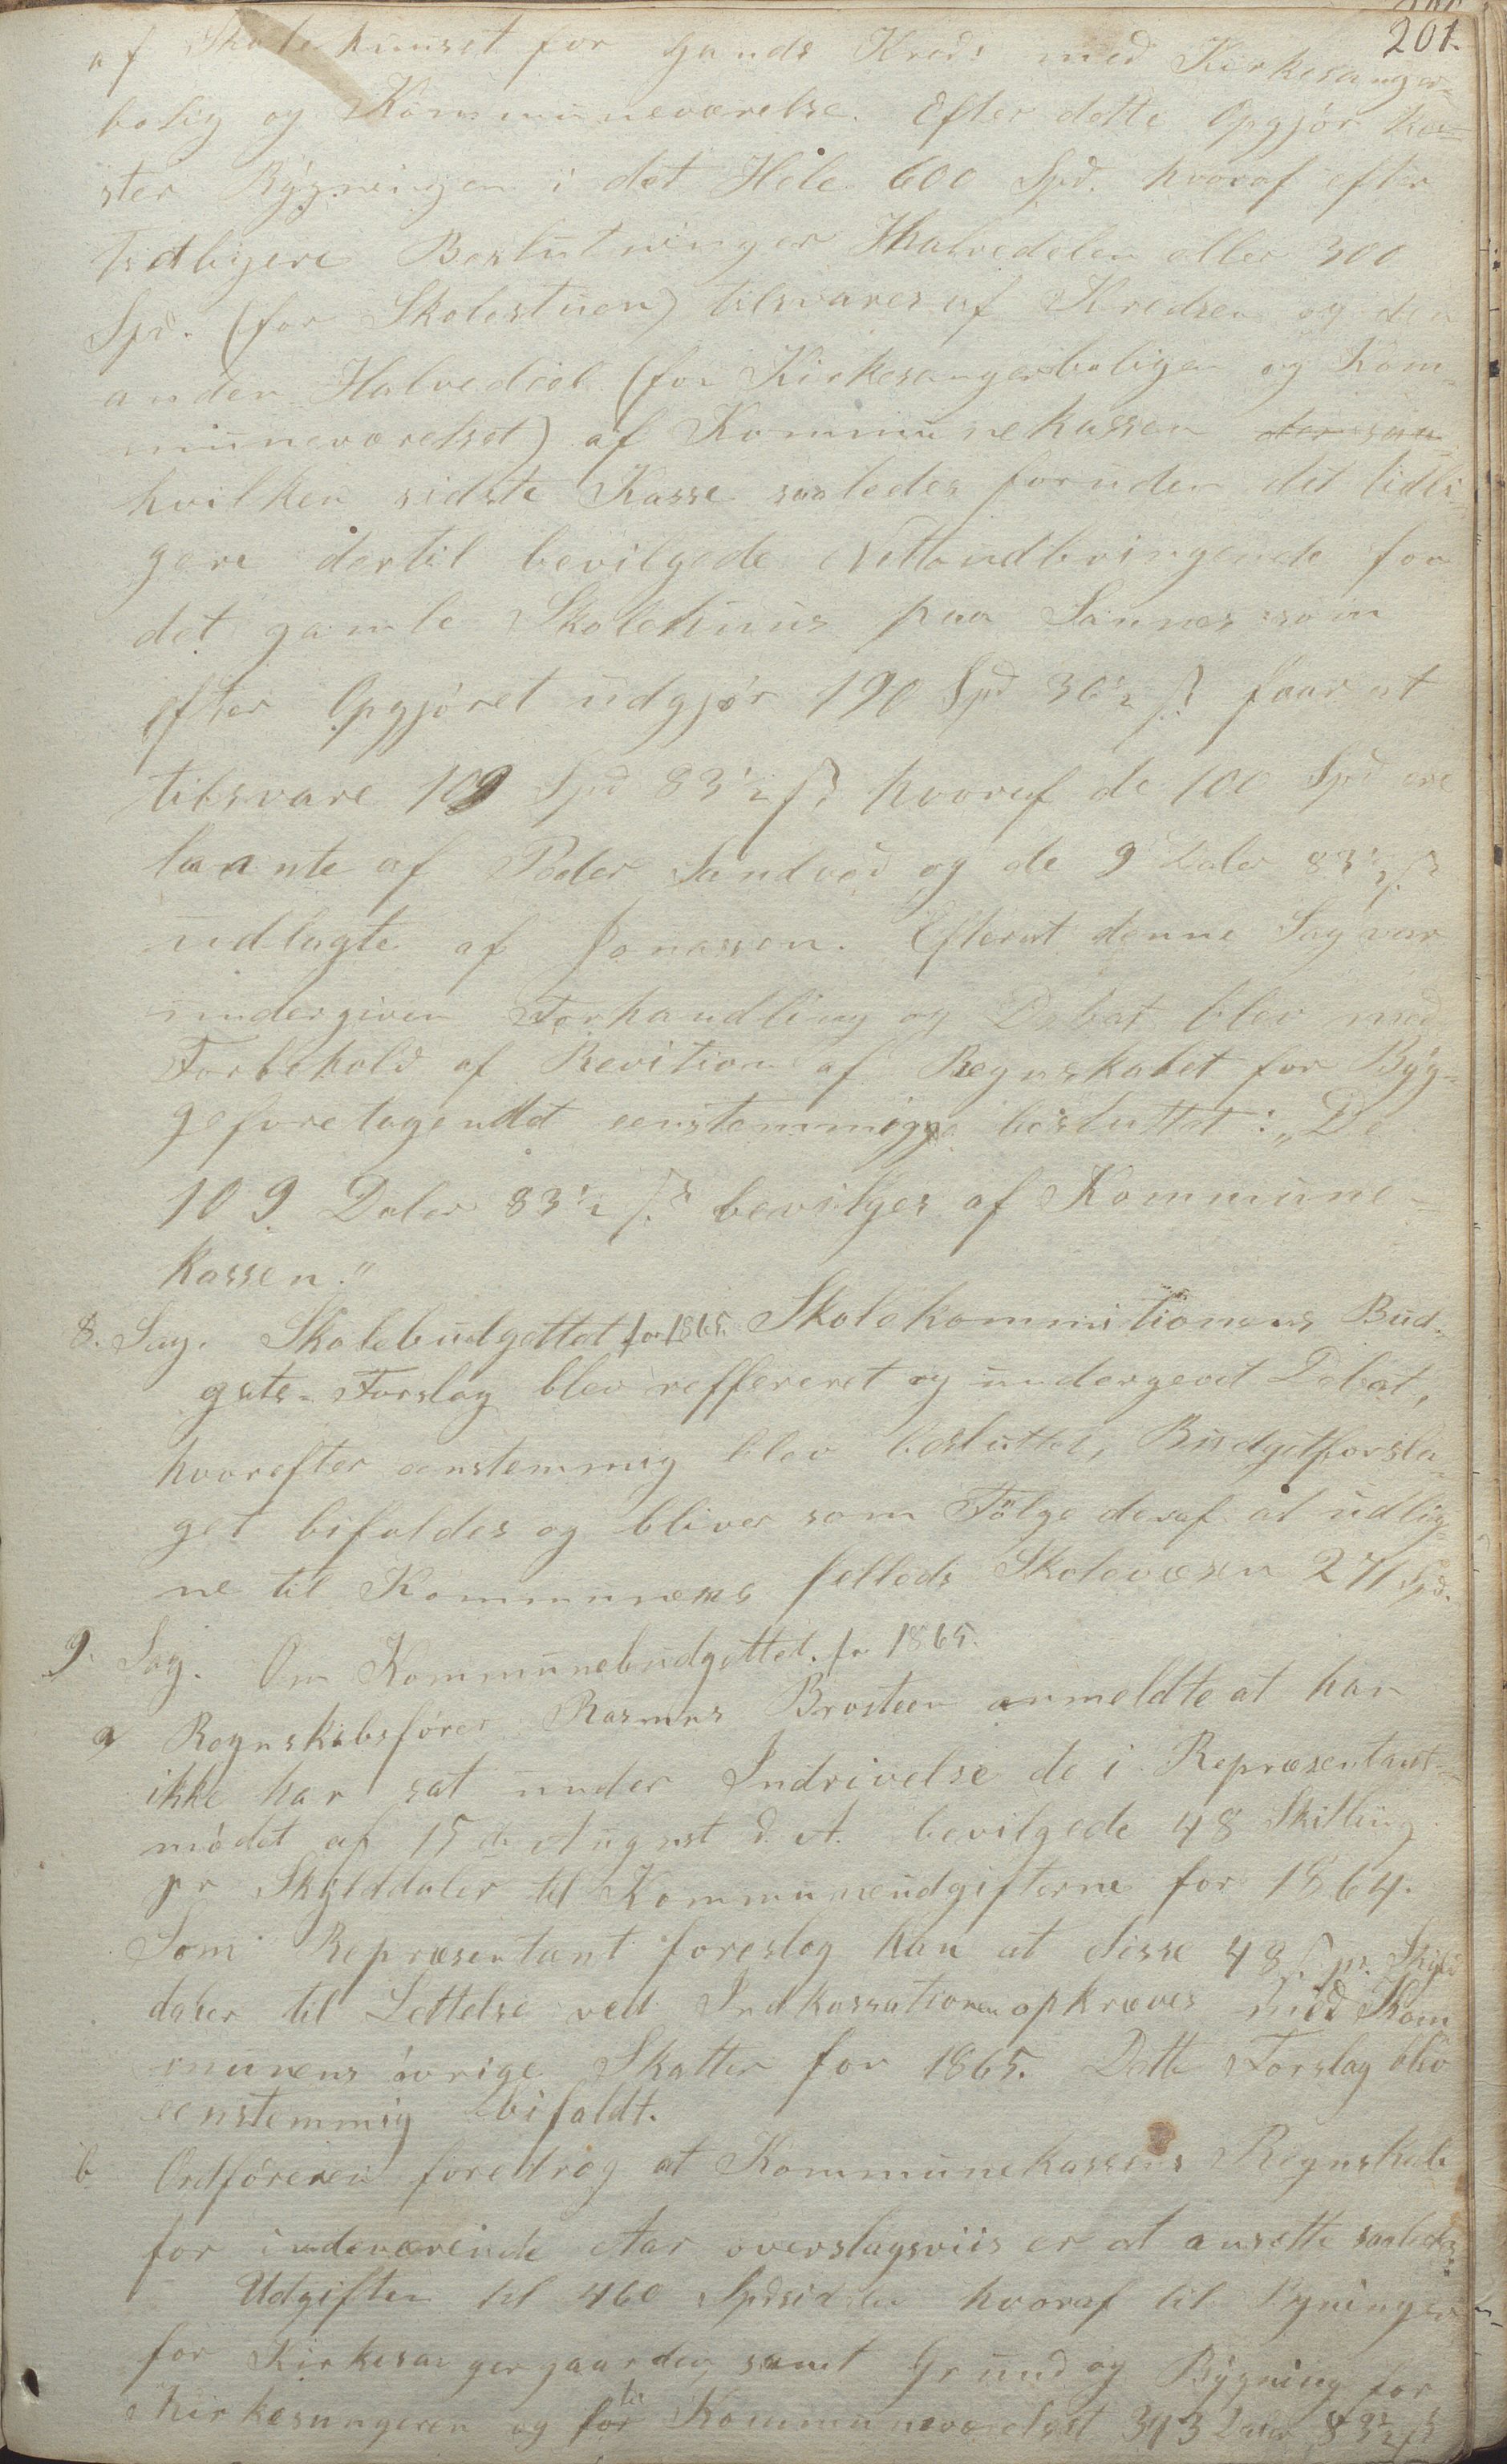 201.
af Skolehuuset for Gands Kreds med Kirkesanger-
bolig og Kommuneværelse. Efter dette Opgjør ko-
ster Bygningen i det Hele 600 Spd. hvoraf efter
tidligere Beslutninger Halvedelen eller 300
Spd. (for Skolestuen) tilsvares af Kredsen og den
anden Halvedeel (for Kirkesangerboligen og Kom-
muneværelset) af Kommunekassen
hvilken sidste Kasse saaledes foruden det tidli-
gere dertil bevilgede Nettoudbringende for
det gamle Skolehuus paa Sannes som
efter Opgjøret udgjør 190 Spd 36½ ß faar at
tilsvare 109 Spd 83½ ß hvoraf de 100 Spd ere
laante af Peder Sandved og de 9 Daler 83½ ß
udlagte af Jonassen. Efterat denne Sag var
undergiven Forhandling og Debat blev med
Forbehold af Revition af Regnskabet for Byg-
geforetagendet eenstemmig besluttet: „De
109 Daler 83½ ß bevilges af Kommune-
kassen."
8. Sag. Skolebudgettet for 1865. Skolekommitionens Bud-
gets-Forslag blev reffereret og undergivet Debat,
hvorefter eenstemmig blev besluttet, Budgetforsla-
get bifaldes og bliver som Følge deraf at udlig-
ne til Kommunens felleds Skolevæsen 271 Spd.
9. Sag. Om Kommunebudgettet for 1865.
a Regnskabsfører Rasmus Brosteen anmeldte at han
ikke har sat under Indrivelse de i Repræsentant-
mødet af 15de August d. A. bevilgede 48 Skilling
pr Skylddaler til Kommuneudgifterne for 1864.
Som Repræsentant foreslog han at disse 48 ß pr. Skyld
daler til Lettelse ved Indkassationen opkræves med Kom
munens øvrige Skatter for 1865. Dette Forslag blev
eenstemmig bifaldt.
b Ordføreren foredrog at Kommunekassens Regnskab
for indeværende Aar overslagsviis er at ansætte saaledes:
Udgifter til 460 Spd hvoraf til Bygninger
for Kirkesangergaarden samt Grund og Bygning for
Kirkesangeren og til Kommuneværelset 393 Daler 83½ ß